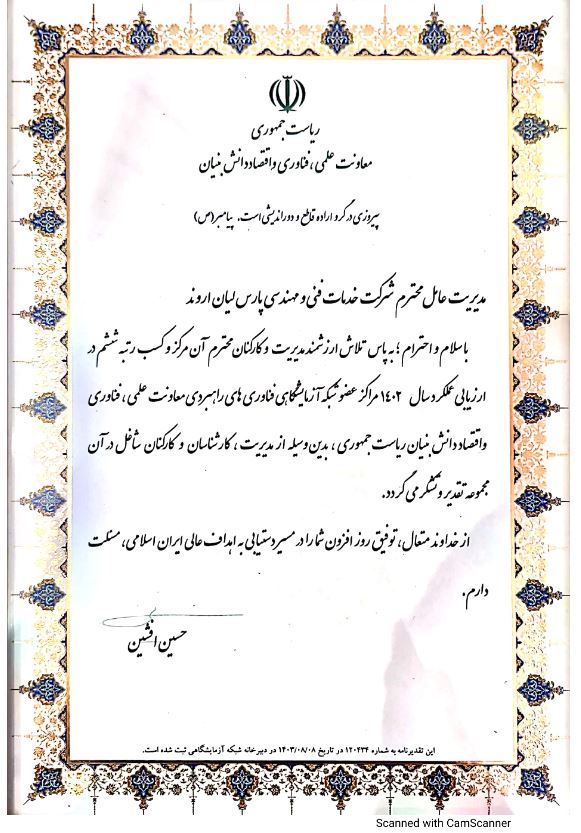 ریاست جمهوری
معاونت علمی، فناوری و اقتصاد دانش بنیان
پیروزی در گرو اراده قاطع و دوراندیشی است. پیامبر(ص)
مدیریت عامل محترم شرکت خدمات فنی و مهندسی پارس لیان اروند
با سلام و احترام ؛ به پاس تلاش ارزشمند مدیریت و کارکنان محترم آن مرکز و کسب رتبه ششم در
ارزیابی عملکرد سال ۱۴۰۲ مراکز عضو شبکه آزمایشگاهی فناوری های راهبردی معاونت علمی، فناوری
و اقتصاد دانش بنیان ریاست جمهوری، بدین وسیله از مدیریت، کارشناسان و کارکنان شاغل در آن
مجموعه تقدیر و تشکر می گردد.
از خداوند متعال، توفیق روز افزون شما را در مسیر دستیابی به اهداف عالی ایران اسلامی، مسئلت
دارم.
حسین افشین
این تقدیرنامه به شماره ۱۲۰۴۳۴ در تاریخ ۱۴۰۳/۰۸/۰۸ در دبیرخانه شبکه آزمایشگاهی ثبت شده است.
Scanned with CamScanner